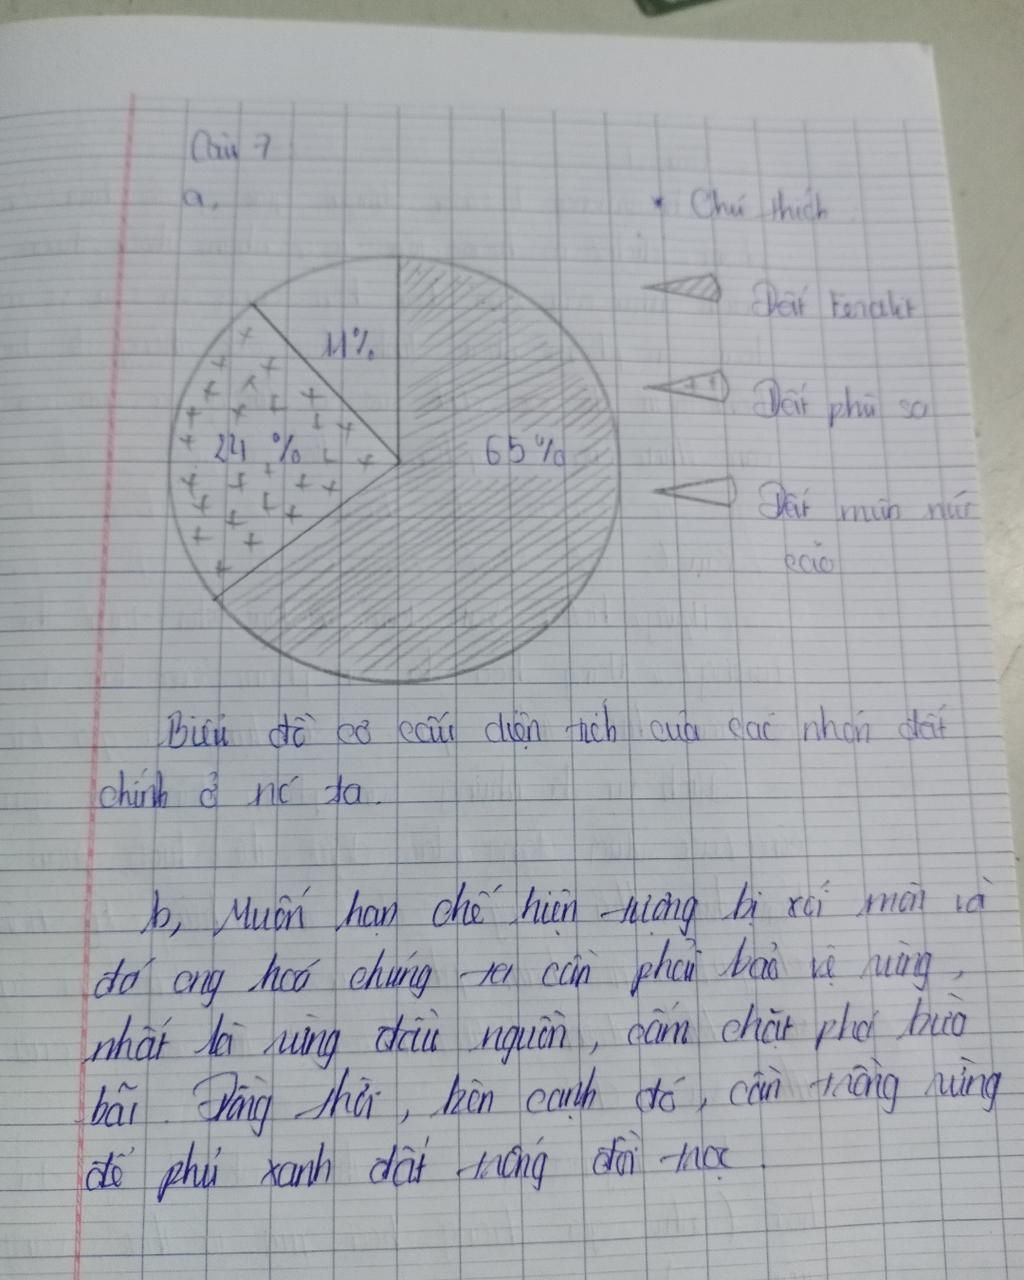 Câu 7
a,
* Chú thích
11%
24 %
65%
Đất Feralit
Đất phù sa
Đất mùn núi
cao
Biểu đồ cơ cấu diện tích của các nhón đất
chính ở nc ta.
b, Muốn hạn chế hiện tượng bị xói mòn và
đá ong hoá chúng ta cần phải bảo vệ rừng,
nhất là rừng đầu nguồn, cấm chặt phá bừa
bãi. Đồng thời, bên cạnh đó, cần trồng rừng
để phủ xanh đất trống đồi trọc.